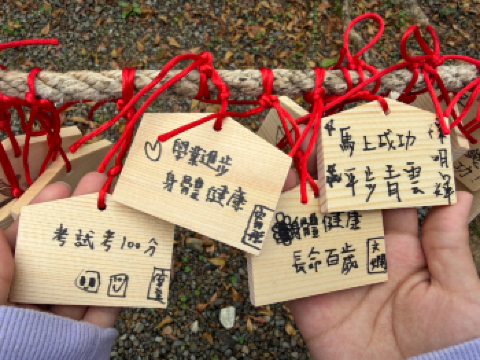 考試考100分
學業進步
身體健康
身體健康
長命百歲
馬上成功
平步青雲